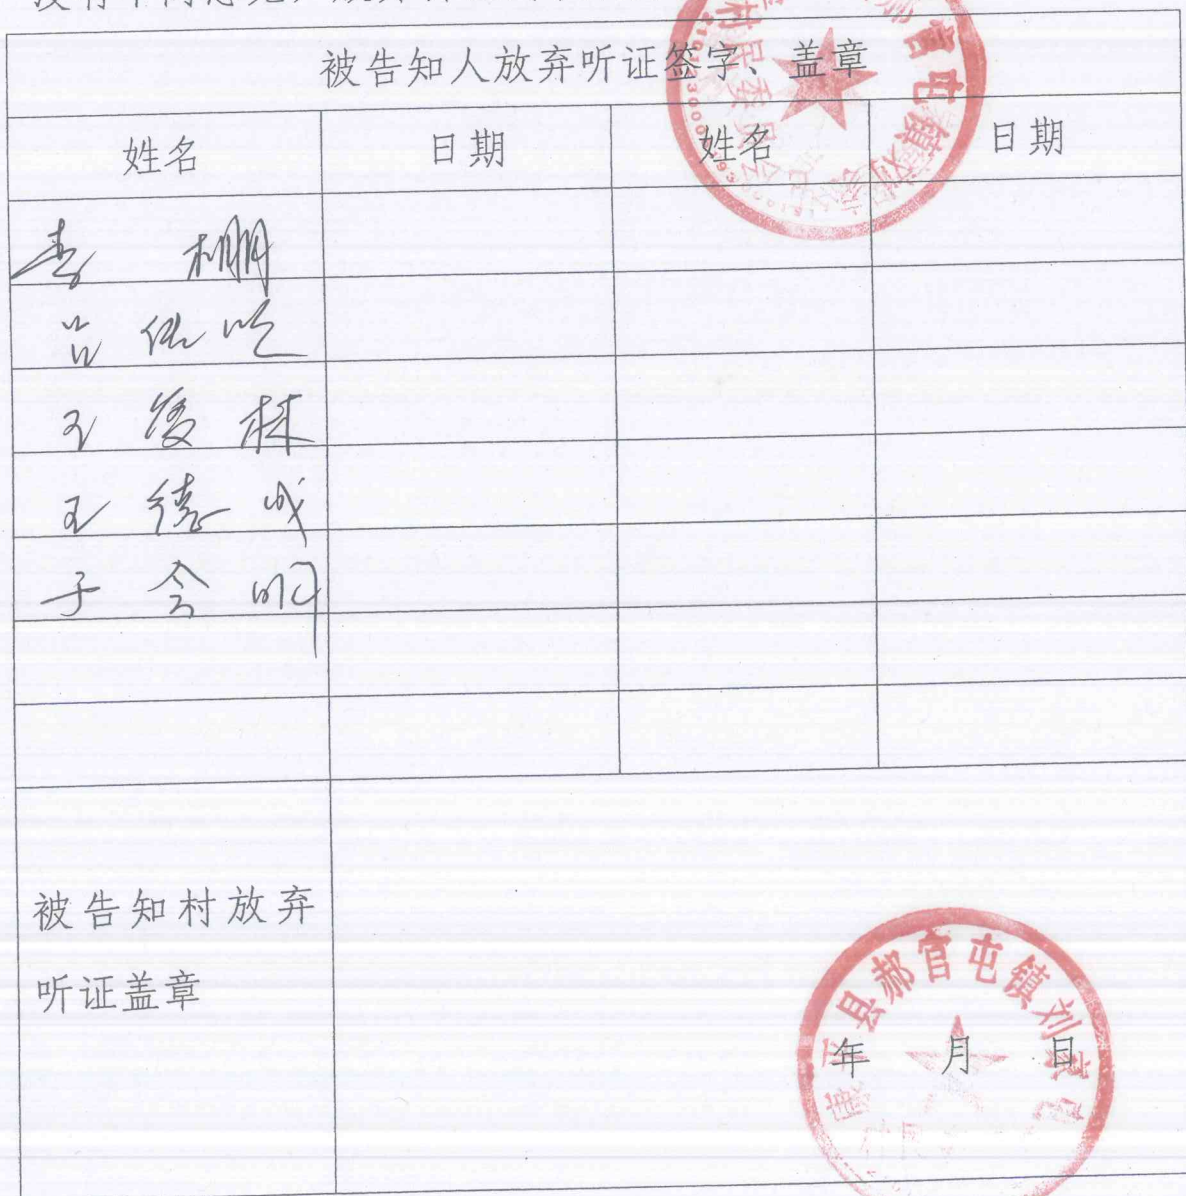 被告知人放弃听证签字、盖章
姓名 日期 姓名 日期
李 棚
王俊林
王德成
于会明
被告知村放弃
听证盖章
年 月 日
康平县郝官屯镇刘家屯